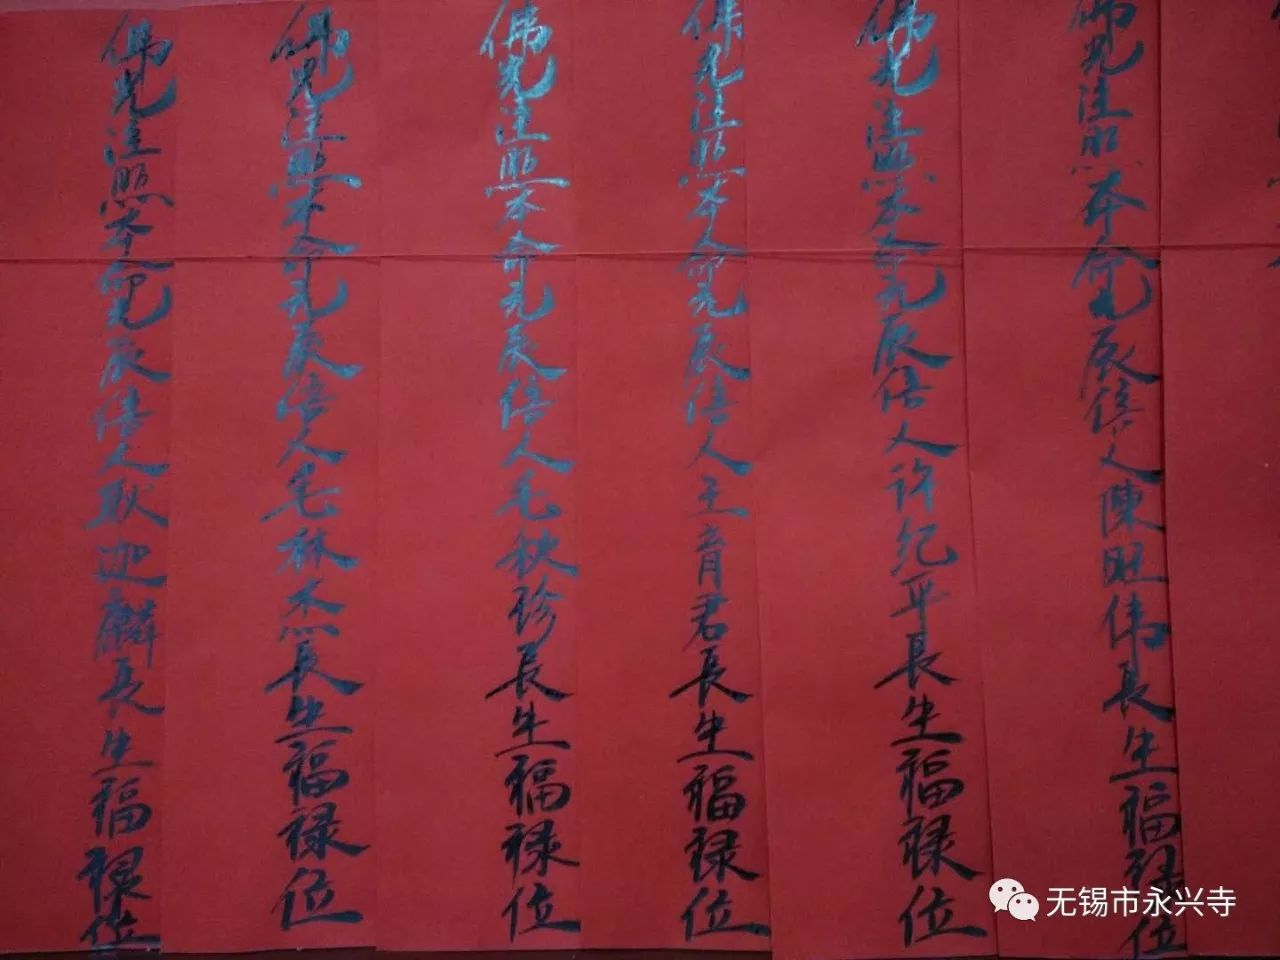 佛光注照本命元辰信人陳旺伟長生福禄位
佛光注照本命元辰信人许纪平長生福禄位
佛光注照本命元辰信人王育君長生福禄位
佛光注照本命元辰信人毛秋珍長生福禄位
佛光注照本命元辰信人毛林杰長生福禄位
佛光注照本命元辰信人耿迦麟長生福禄位
无锡市永兴寺